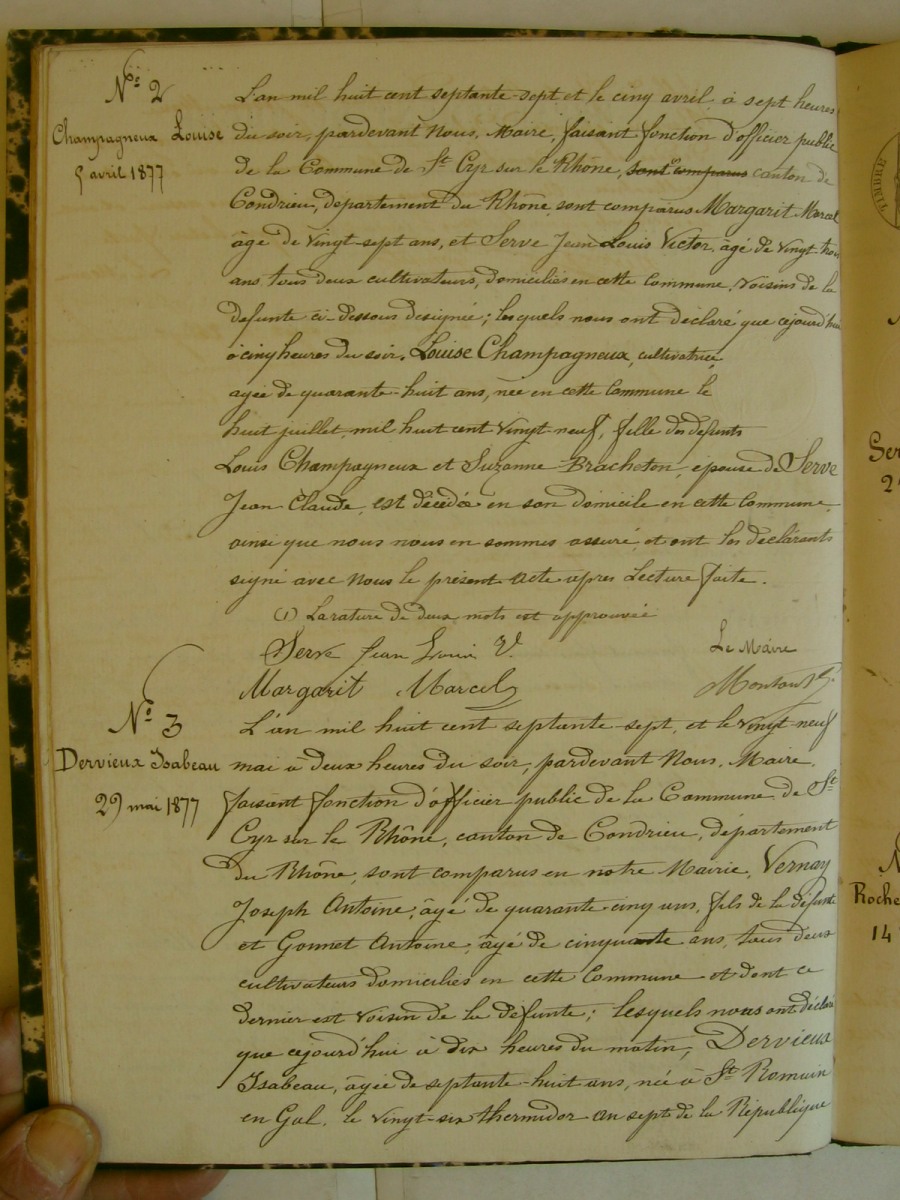 N° 2
Champagneux Louise
5 avril 1877
L'an mil huit cent septante-sept et le cinq avril, à sept heures
du soir, pardevant Nous, Maire, faisant fonction d'officier public
de la Commune de St Cyr sur le Rhône, sont comparus canton de
Condrieu, departement du Rhône, sont comparus Margarit Marcel
âgé de vingt-sept ans, et Serve Jean Louis Victor, âgé de vingt-trois
ans, tous deux cultivateurs, domiciliés en cette Commune, voisins de la
defunte ci-dessous designée; lesquels nous ont declaré que cejourd'hui
à cinq heures du soir, Louise Champagneux, cultivatrice,
agée de quarante-huit ans, née en cette Commune le
huit juillet mil huit cent vingt neuf, fille des defunts
Louis Champagneux et Suzanne Bracheton, épouse de Serve
Jean Claude, est décédée en son domicile en cette Commune,
ainsi que nous nous en sommes assuré, et ont les déclarants
signé avec Nous le présent acte apres Lecture faite.
(1) La rature de deux mots est approuvée
Serve Jean Louis V.
Le Maire
Margarit Marcel
N° 3
Dervieux Isabeau
29 mai 1877
L'an mil huit cent septante-sept, et le vingt-neuf
mai à deux heures du soir, pardevant Nous, Maire,
faisant fonction d'officier public de la Commune de St
Cyr sur le Rhône, canton de Condrieu, département
du Rhône, sont comparus en notre Mairie, Vernay
Joseph Antoine, âgé de quarante-cinq ans, fils de la défunte
et Gonnet Antoine, âgé de cinquante ans, tous deux
cultivateurs domiciliés en cette Commune et dont ce
dernier est voisin de la défunte; lesquels nous ont déclaré
que cejourd'hui à dix heures du matin, Dervieux
Isabeau, âgée de septante-huit ans, née à St Romain
en Gal, le vingt-six thermidor an sept de la République
Ser
2
N
Roche
14
TIMBRE